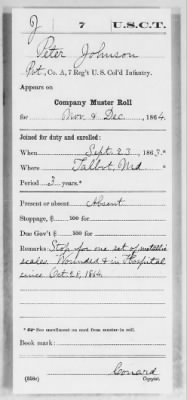 J 7 U.S.C.T.
Peter Johnson
Pvt., Co. A, 7 Reg't U. S. Col'd Infantry.
Appears on
Company Muster Roll
for Nov & Dec, 1864.
Joined for duty and enrolled:
When Sept. 23, 1863.*
Where Talbot, Md
Period 3 years.*
Present or absent Absent
Stoppage, $ 100 for
Due Gov't $ 100 for
Remarks: Stop for one set of metallic
scales. Wounded & in Hospital
since Oct. 28, 1864.
* See enrollment on card from muster-in roll.
Book mark:
Conard
(358c) Copyist.